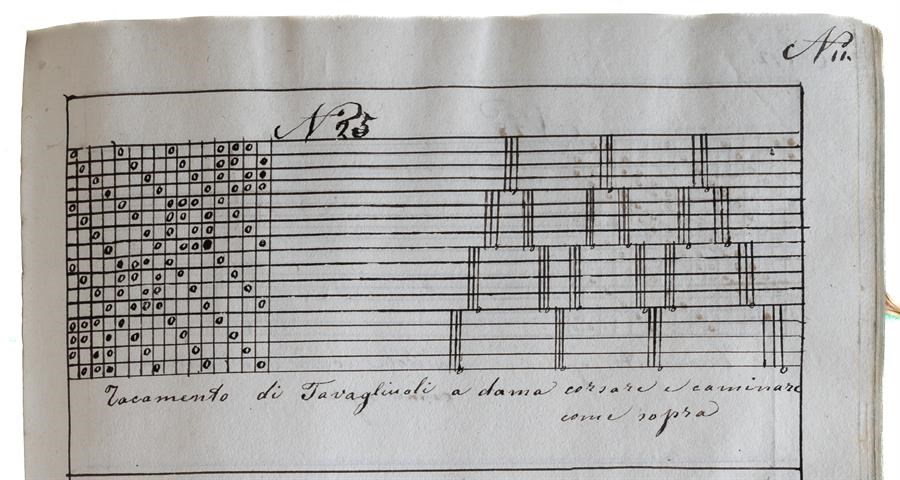 N 11.
N 25
Tacamento di Tavagliuoli a dama corsare e caminare
come sopra